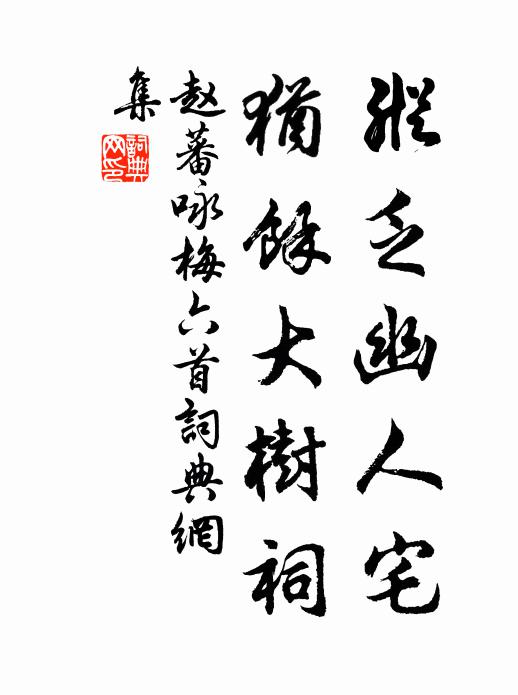 縱乏幽人宅
猶餘大樹祠
赵蕃咏梅六首詞典網
集
詞典
网印